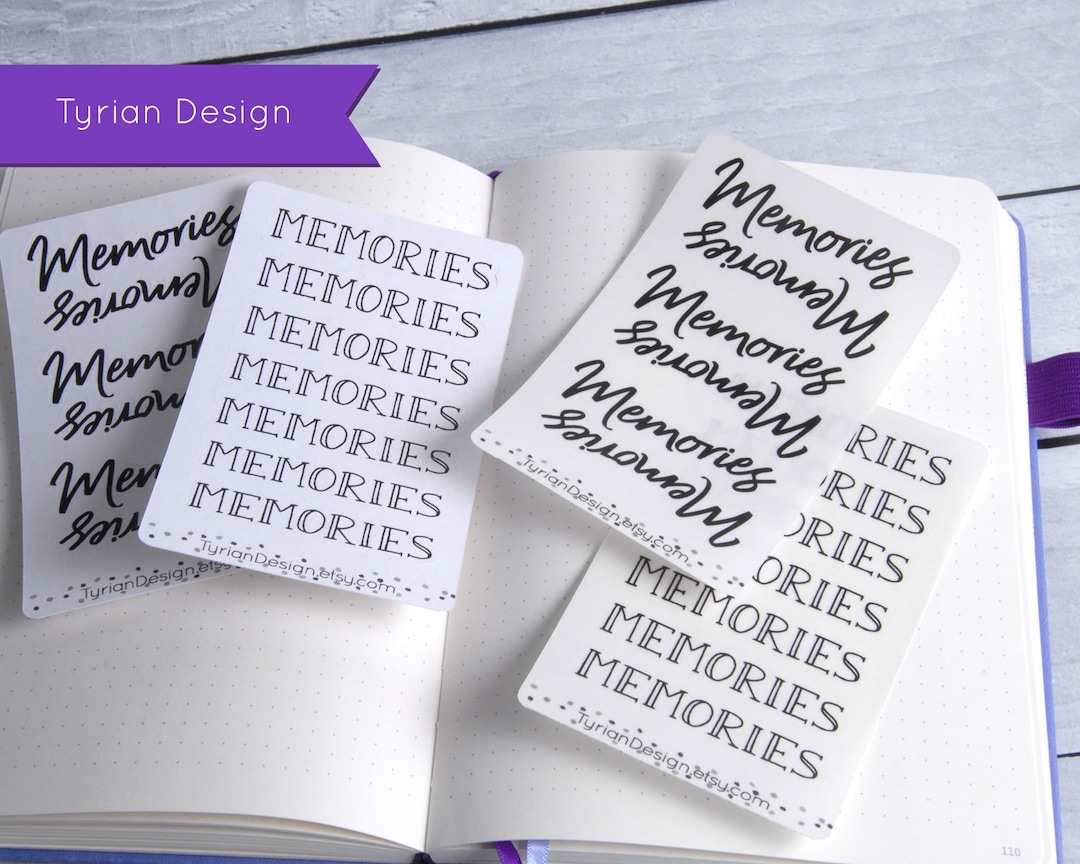 Tyrian Design
Memories
Memories
Memor
mories
Mem
ries
TyrianDesign.ets
MEMORIES
MEMORIES
MEMORIES
MEMORIES
MEMORIES
MEMORIES
MEMORIES
TyrianDesign.etsy.com
Memories
Memories
Memories
Memories
Memories
Memories
TyrianDesign.etsy.com
RIES
RIES
ORIES
ORIES
MEMORIES
MEMORIES
MEMORIES
TyrianDesign.etsy.com
110